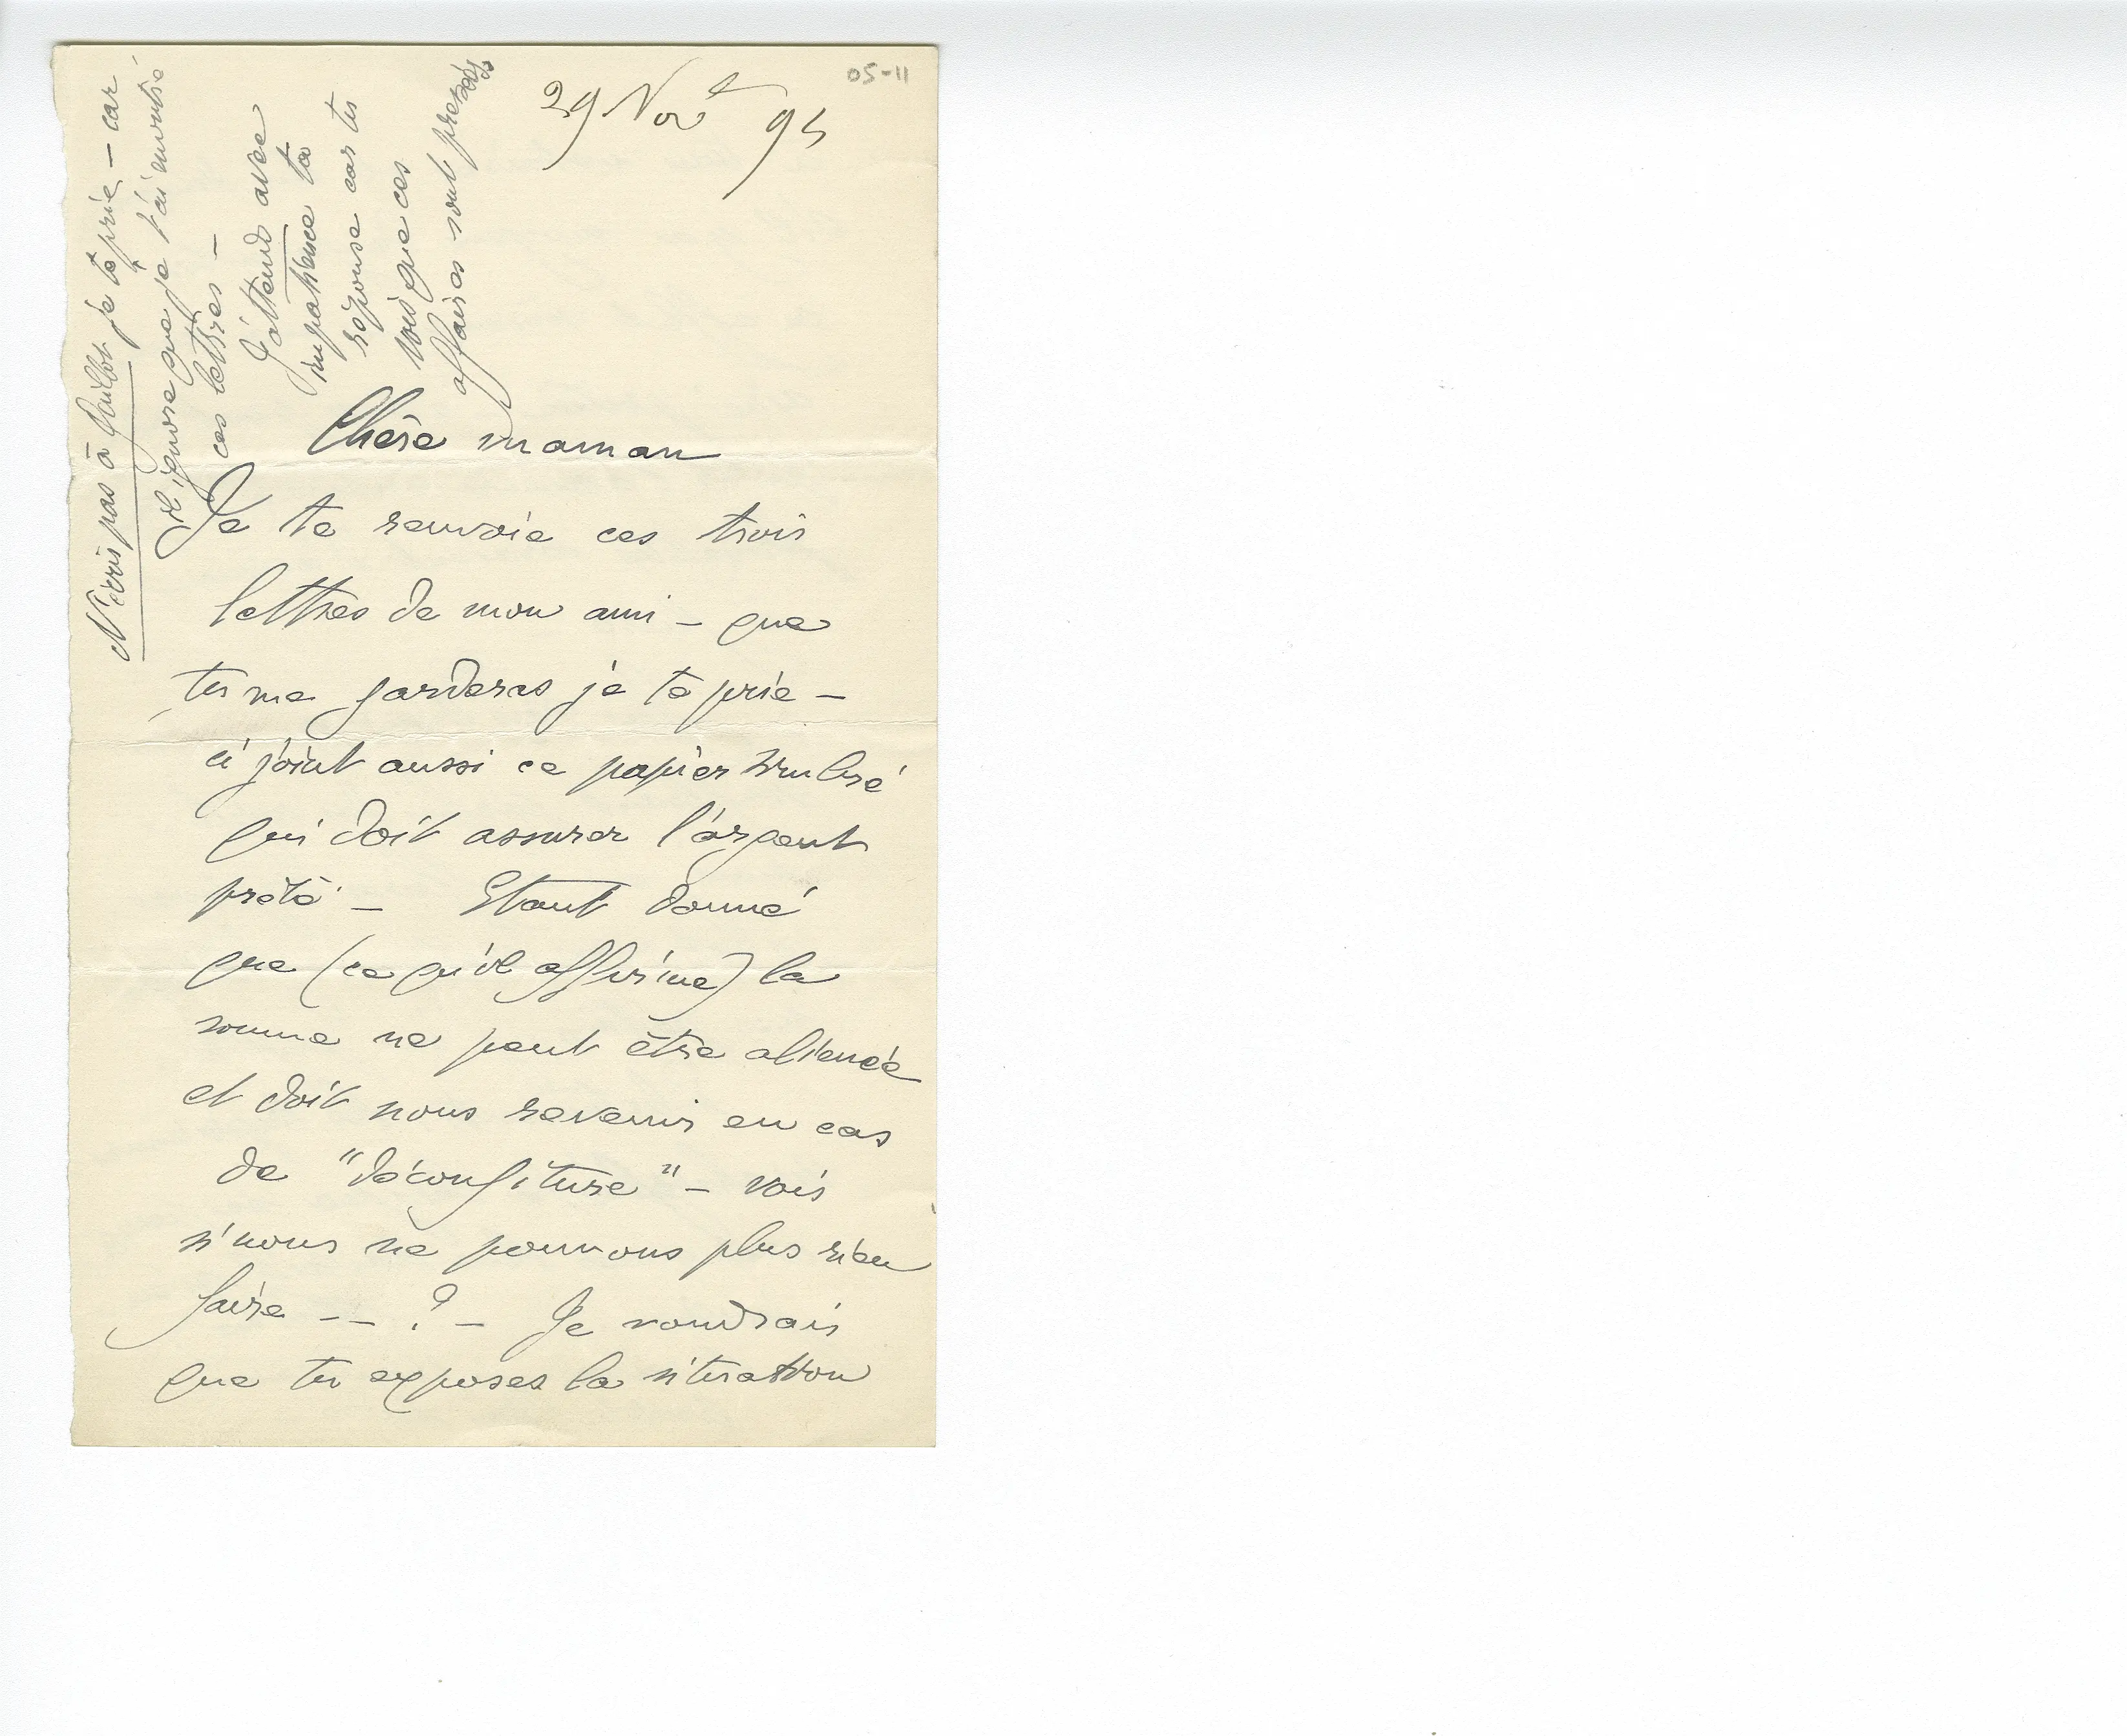 05-11
29 Nov^e 95
Chère maman
Je te renvoie ces trois
lettres de mon ami – que
tu me garderas je te prie –
ci joint aussi ce papier timbré
qui doit assurer l'argent
prêté – Etant donné
que (ce qu'il affirme) la
somme ne peut être aliénée
et doit nous revenir en cas
de "déconfiture" – vois
si nous ne pouvons plus rien
faire – – ? – Je voudrais
que tu exposes la situation
N'écris pas à je te prie – car
il ignore que je t'ai montré
ces lettres –
J'attends avec
impatience ta
réponse car tu
vois que ces
affaires sont